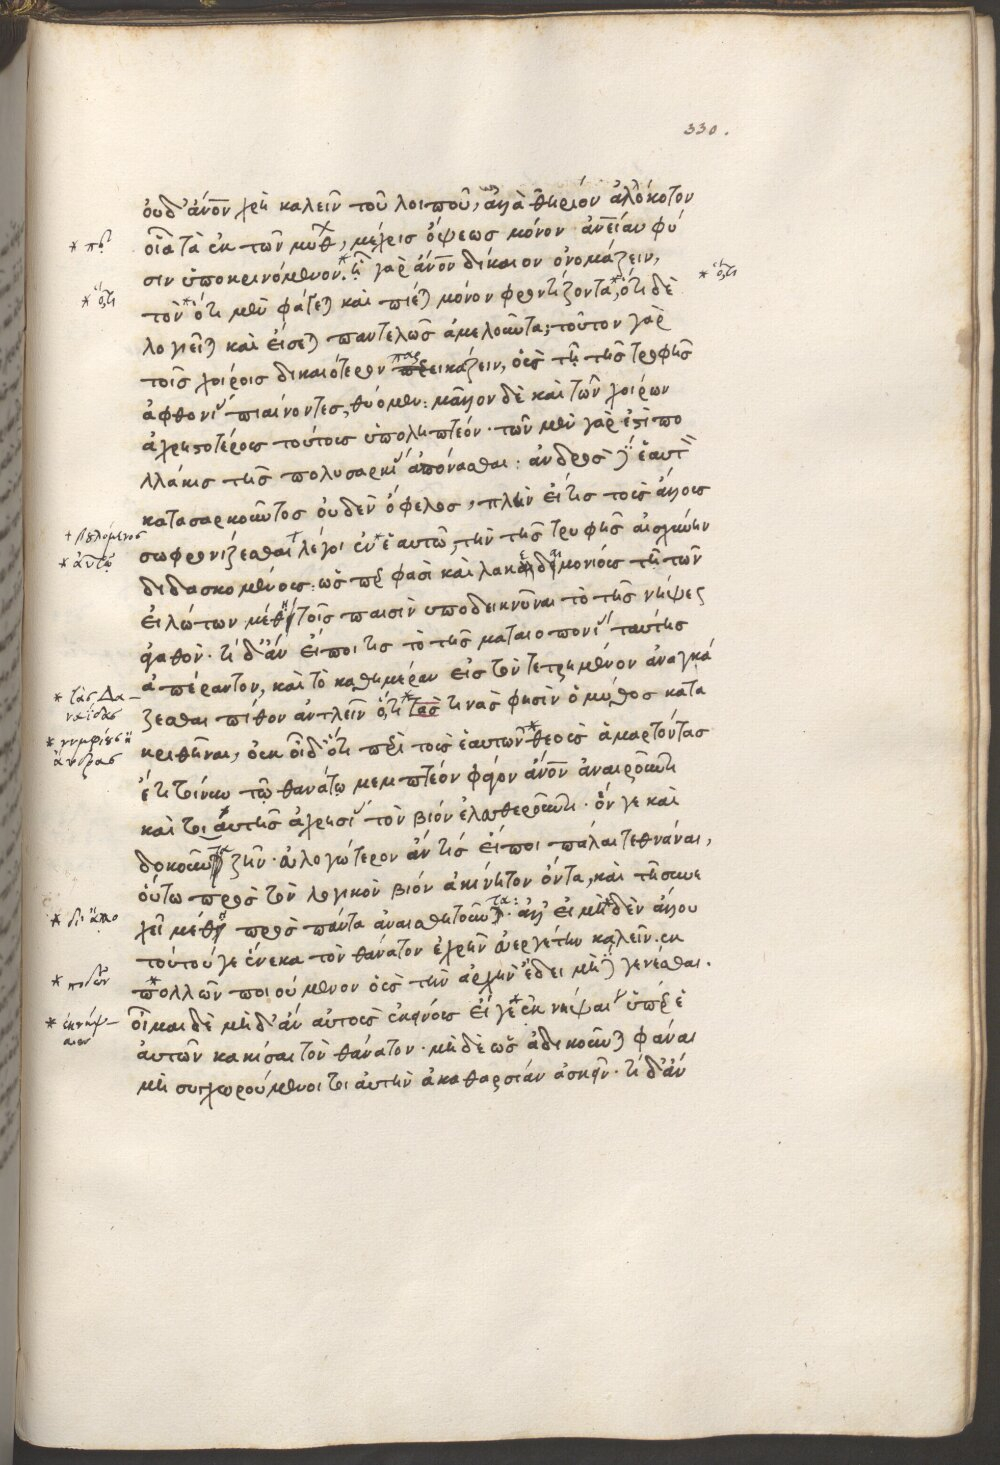 330.
οὐδ' ἄνον χρὴ καλεῖν τοῦ λοιποῦ, ἀλλὰ θηρίον ἀλλόκοτον
οἷα τὰ ἐκ τῶν μύθ, μέχρις ὄψεως μόνον ἀνείαν φύ
σιν ὑποκρινόμενον.* γὰρ ἄνον δίκαιον ὀνομάζειν,
τὸν * ὅτι μὲν φάγεται καὶ πίεται μόνον φροντίζοντα,* ὅτι δὲ
λογιεῖται καὶ εἴσεται παντελῶς ἀμελοῦντα; τοῦτον γὰρ
τοῖς χοίροις δικαιότερον παρεικάζειν, οὓς τῇ τῆς τρυφῆς
ἀφθονίᾳ πιαίνοντες, θύομεν: μᾶλλον δὲ καὶ τῶν χοίρων
ἀχρηστοτέροις τούτοις ὑποληπτέον· τῶν μὲν γὰρ ἐστὶ πο
λλάκις τῆς πολυσαρκίας ἀπόνασθαι: ἀνδρὸς δὲ ἑαυτὸν
κατασαρκοῦντος οὐδὲν ὄφελος, πλὴν εἴ τις τοῖς ἄλλοις
σωφρονίζεσθαι + λέγοι ἐν * ἑαυτῷ, τὴν τῆς τρυφῆς αἰσχύνην
διδασκομένοις: ὥσπερ φασὶ καὶ λακεδαιμονίοις τῇ τῶν
εἱλώτων μέθῃ τοῖς παισὶν ὑποδεικνῦναι τὸ τῆς νήψεως
ἀγαθόν· τί δ' ἂν εἴποι τις τὸ τῆς ματαιοπονίας ταύτης
ἀπέραντον, καὶ τὸ καθημέραν εἰς τὸν τετρημένον ἀναγκά
ζεσθαι πίθον ἀντλεῖν ὅτι * τὰς τινάς φησὶν ὁ μῦθος κατα
κριθῆναι, οὐκ οἶδ' ὅτι περὶ τοὺς ἑαυτῶν * θεοὺς ἁμαρτόντας
ἔτι τοίνυν τῷ θανάτῳ μεμπτέον φαῦλον ἄνον ἀναιροῦντι
καὶ τοιαύτης ἀχρησίας τὸν βίον ἐλευθεροῦντι· ὅν γε καὶ
δοκοῦντα ζῆν· εὐλογώτερον ἄν τις εἴποι πάλαι τεθνάναι,
οὕτω πρὸς τὸν λογικὸν βίον ἀκίνητον ὄντα, καὶ τῇ συνε
χεῖ μέθῃ πρὸς πάντα ἀναισθητοῦντα: ἀλλ' εἰ μηδὲν ἄλλου
τούτου γε ἕνεκα τὸν θάνατον ἐχρῆν εὐεργέτην καλεῖν. ἐκ
* πολλῶν ποιούμενον οὓς τὴν ἀρχὴν ἔδει μὴ δὲ γενέσθαι.
οἶμαι δὲ μηδ' ἂν αὐτοὺς ἐκείνους εἴ γε * ἐκ νήψαιεν ὑπὲρ ἑ
αυτῶν κακίσαι τὸν θάνατον· μηδὲ ὡς ἀδικοῦνται φάναι
μὴ συγχωρούμενοι τοιαύτην ἀκαθαρσίαν ἀσκεῖν· τί δ' ἄν
* ὅτι
* ὅτι
+ βουλόμενος
* αὐτῷ
* τὰς Δα-
ναΐδας
* νυμφίους ἢ
ἄνδρας
* δι' ἄπο
* ποδῶν
* ἐκνήψ-
αιεν